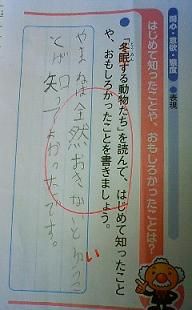 関心・意欲・態度
●表現
はじめて知ったことや、おもしろかったことは？
●「冬眠する動物たち」を読んで、はじめて知ったこと
や、おもしろかったことを書きましょう。
やまねは全然おきないとゆうこ
い
とが知ってよかったです。